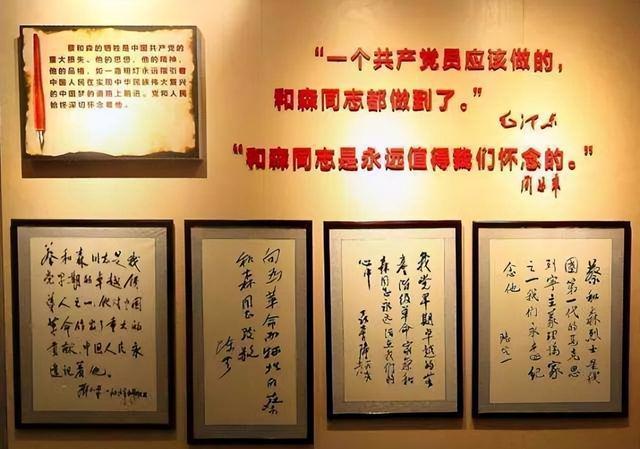 蔡和森的牺牲是中国共产党的
重大损失。他的思想，他的精神，
他的品格，如一盏明灯永远指引着
中国人民在实现中华民族伟大复兴
的中国梦的道路上前进。党和人民
始终深切怀念着他。
“一个共产党员应该做的，
和森同志都做到了。”
毛泽东
“和森同志是永远值得我们怀念的。”
周恩来
蔡和森同志是我
党早期的卓越领
导人之一，他对中国
革命作出了重大的
贡献，中国人民永
远记着他。
邓小平
向为革命而牺牲的蔡
和森同志致敬
陈云
我党早期卓越的无
产阶级革命家蔡和
森同志永远活在我们的
心中
聂荣臻
蔡和森烈士是我
国第一代的马克思
列宁主义理论家
之一我们永远纪
念他
陆定一